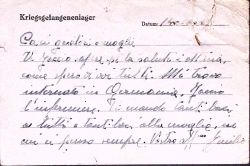 Kriegsgefangenenlager
Datum:
Cari genitori e moglie
Vi faccio sapere che la salute è ottima,
come spero di voi tutti. Mi trovo
internato in Germania. Faccio
l'infermiere. Vi mando tanti baci
a tutti e tanti baci alla moglie, 
cui vi penso sempre. Vostro